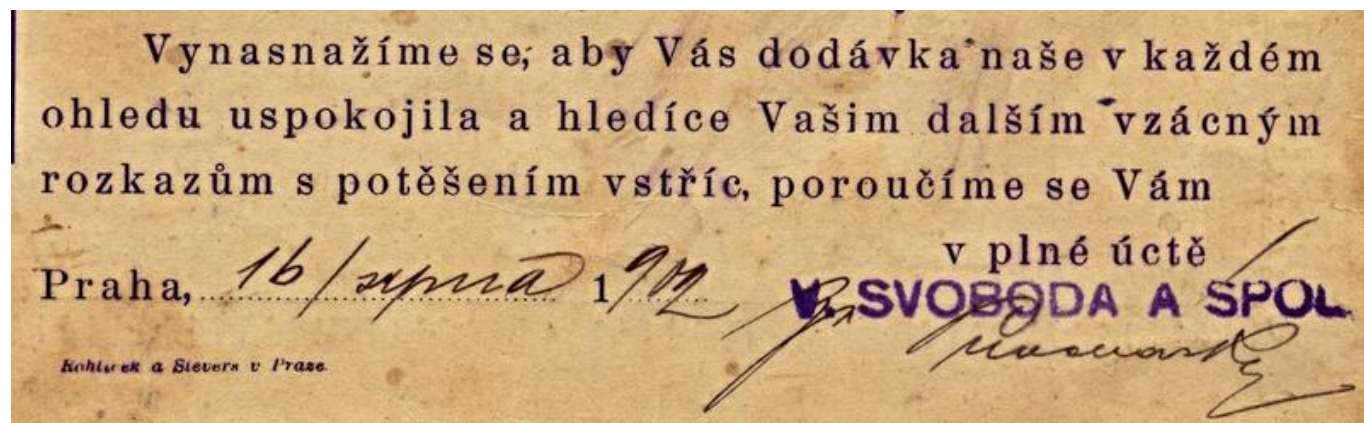 Vynasnažíme se, aby Vás dodávka naše v každém
ohledu uspokojila a hledíce Vašim dalším vzácným
rozkazům s potěšením vstříc, poroučíme se Vám
v plné úctě
Praha, 16/srpna 1902
V. SVOBODA A SPOL.
a Sievers v Praze.